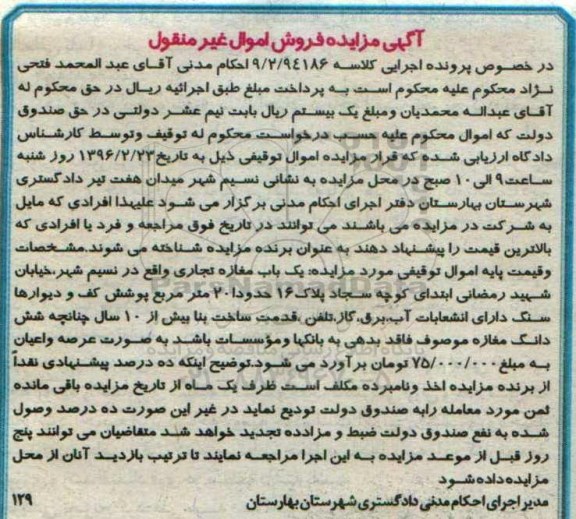 آگهی مزایده فروش اموال غیر منقول
در خصوص پرونده اجرایی کلاسه ۹/۲/۹۴۱۸۶ احکام مدنی آقای عبد المحمد فتحی
نژاد محکوم علیه محکوم است به پرداخت مبلغ طبق اجرائیه ریال در حق محکوم له
آقای عبداله محمدیان ومبلغ یک بیستم ریال بابت نیم عشر دولتی در حق صندوق
دولت که اموال محکوم علیه حسب درخواست محکوم له توقیف وتوسط کارشناس
دادگاه ارزیابی شده که قرار مزایده اموال توقیفی ذیل به تاریخ ۱۳۹۶/۲/۲۳ روز شنبه
ساعت ۹ الی ۱۰ صبح در محل مزایده به نشانی نسیم شهر میدان هفت تیر دادگستری
شهرستان بهارستان دفتر اجرای احکام مدنی برگزار می شود علیهذا افرادی که مایل
به شرکت در مزایده می باشند می توانند در تاریخ فوق مراجعه و فرد یا افرادی که
بالاترین قیمت را پیشنهاد دهند به عنوان برنده مزایده شناخته می شوند.مشخصات
وقیمت پایه اموال توقیفی مورد مزایده: یک باب مغازه تجاری واقع در نسیم شهر،خیابان
شهید رمضانی ابتدای کوچه سجاد پلاک ۱۶ حدودا ۲۰ متر مربع پوشش کف و دیوارها
سنگ دارای انشعابات آب،برق،گاز،تلفن ،قدمت ساخت بنا بیش از ۱۰ سال چنانچه شش
دانگ مغازه موصوف فاقد بدهی به بانکها ومؤسسات باشد به صورت عرصه واعیان
به مبلغ ۷۵/۰۰۰/۰۰۰ تومان برآورد می شود.توضیح اینکه ده درصد پیشنهادی نقداً
از برنده مزایده اخذ ونامبرده مکلف است ظرف یک ماه از تاریخ مزایده باقی مانده
ثمن مورد معامله رابه صندوق دولت تودیع نماید در غیر این صورت ده درصد وصول
شده به نفع صندوق دولت ضبط و مزادده تجدید خواهد شد متقاضیان می توانند پنج
روز قبل از موعد مزایده به این اجرا مراجعه نمایند تا ترتیب بازدید آنان از محل
مزایده داده شود
مدیر اجرای احکام مدنی دادگستری شهرستان بهارستان ۱۲۹
ParsNamadData